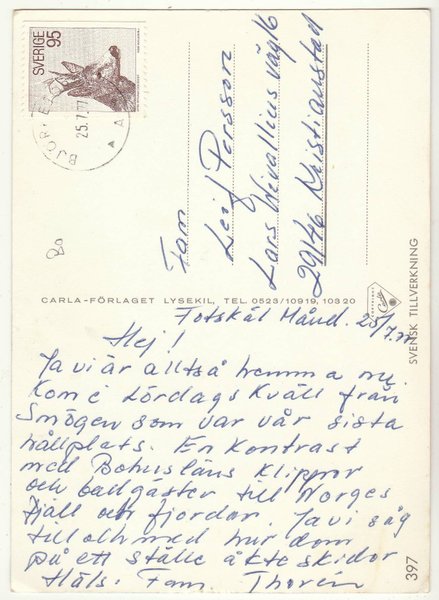 SVERIGE 95
25.7.77
A
Fam
Leif Persson
Lars Wivallius väg 16
29146 Kristianstad
CARLA-FÖRLAGET LYSEKIL, TEL. 0523/10919, 10320
SVENSK TILLVERKNING
397
Fotskäl Månd. 25/7.77
Hej!
Ja vi är alltså hemma nu.
Kom é Lördags Kväll från
Smögen som var vår sista
hållplats. En Kontrast
med Bohusläns Klippor
och badgäster till Norges
fjäll och fjordar. Ja vi såg
till och med hur dom
på ett ställe åkte skidor
Häls. Fam. Thorén